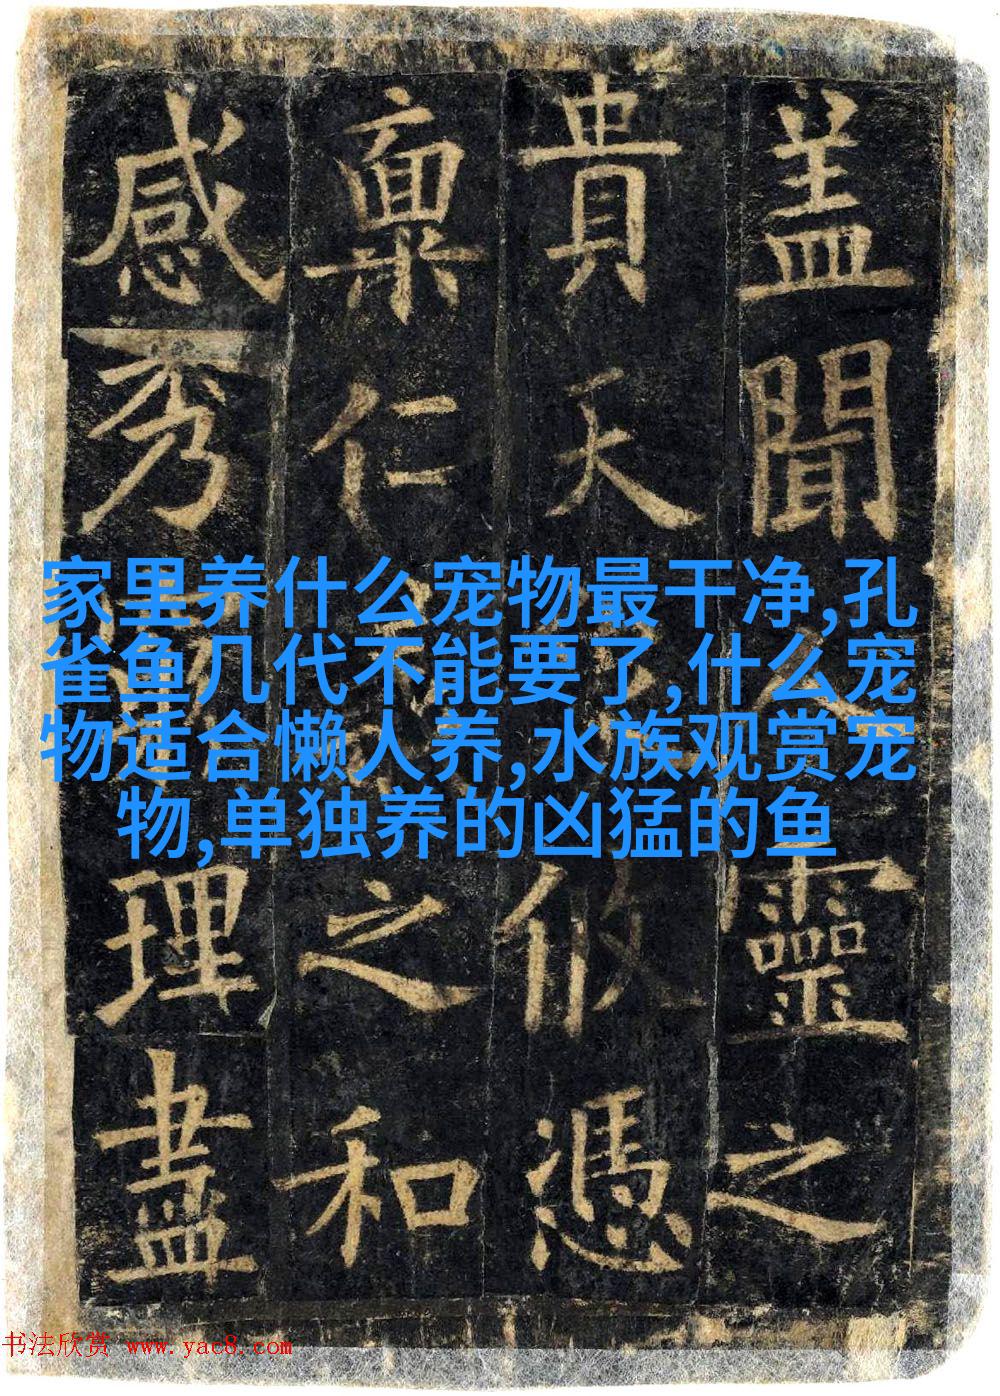 盖聞靈之
貴天攸憑
稟仁之和
感秀理盡
家里养什么宠物最干净,孔
雀鱼几代不能要了,什么宠
物适合懒人养,水族观赏宠
物,单独养的凶猛的鱼
书法欣赏 www.yac8.com